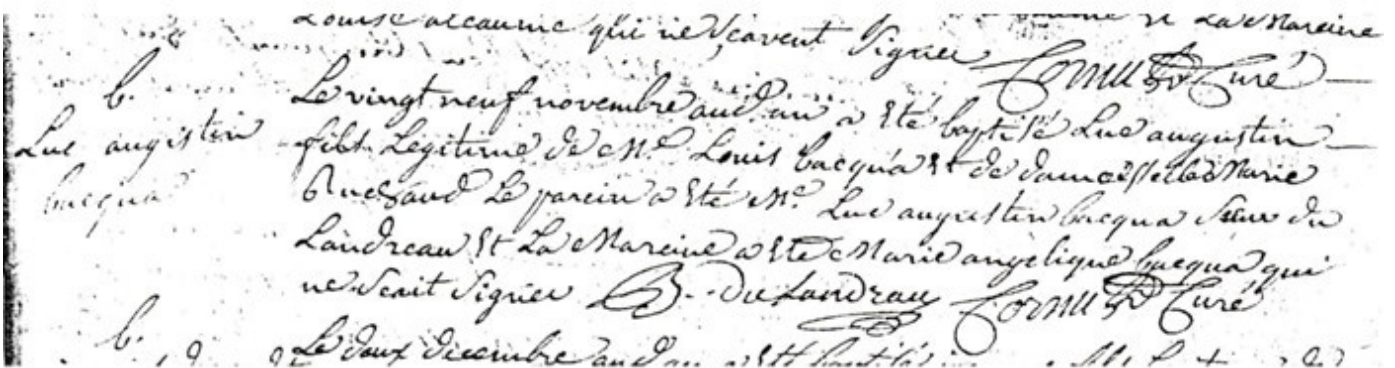 Louise aleaume qui ne sçavent signer et La Mareine
Cornu Curé
b.
Luc augistin
bacqua
Le vingt neuf novembre aud. an a Eté baptisé Luc augustin
fils Legitime de Me. Louis bacqua Et de damoiselle Marie
Ruchaud Le parein a Eté Me. Luc augustin bacqua Sieur du
Landreau Et La Mareine a Eté Marie angelique bacqua qui
ne Scait Signer B. Du Landreau Cornu Curé
b.
Le deux decembre aud. an a Eté baptisé